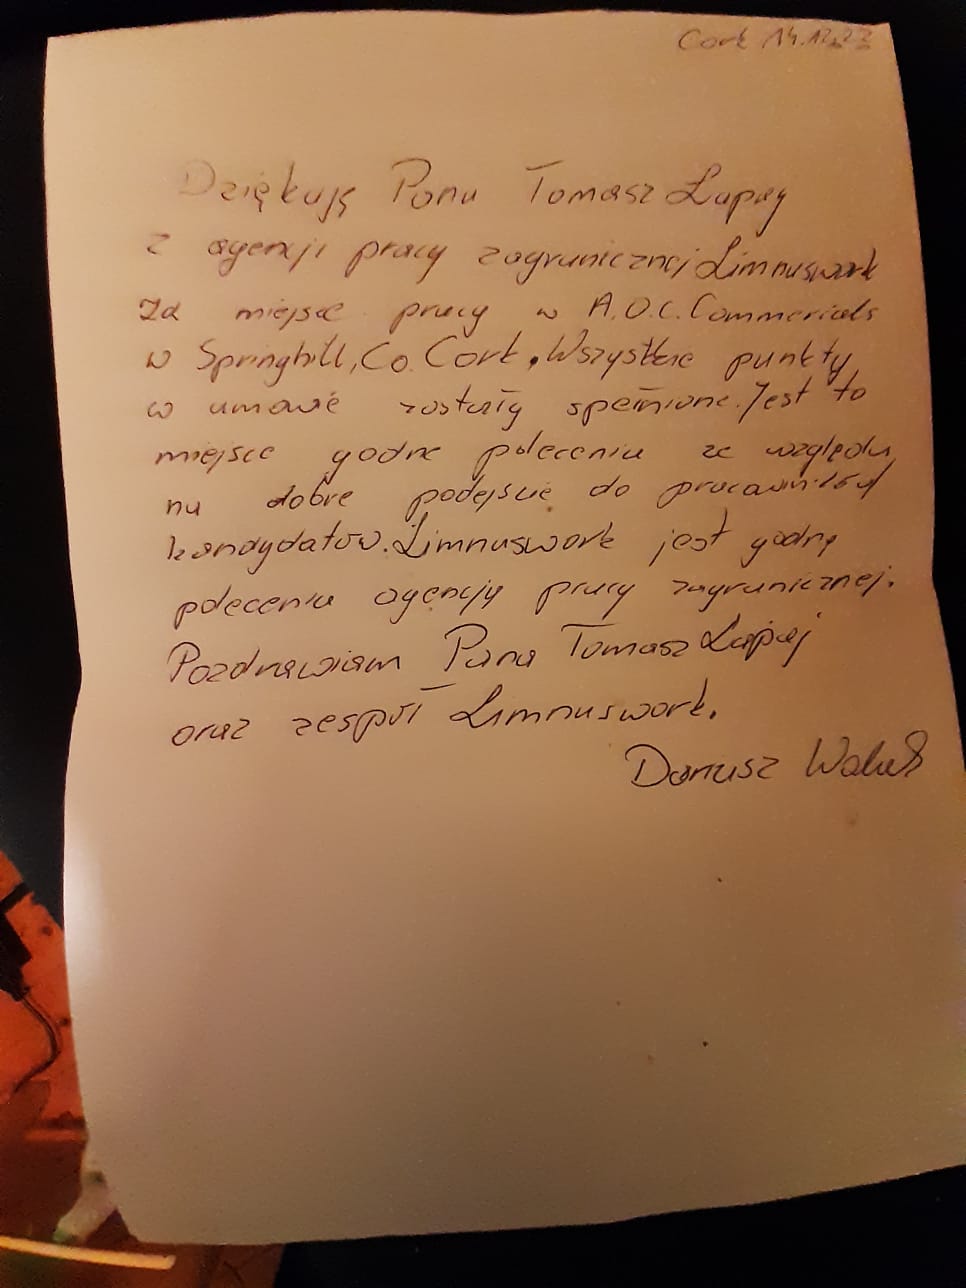 Cort 14.12.23
Dziękuję Panu Tomasz Łapaj
z agencji pracy zagranicznej Limnuswork
Za miejsce pracy w A.O.C. Commericals
w Springhill, Co. Cork. Wszystkie punkty
w umowie zostały spełnione. Jest to
miejsce godne polecenia ze względu
na dobre podejście do pracowników/
kandydatów. Limnuswork jest godną
polecenia agencją pracy zagranicznej.
Pozdrawiam Pana Tomasz Łapaj
oraz zespół Limnuswork.
Dariusz